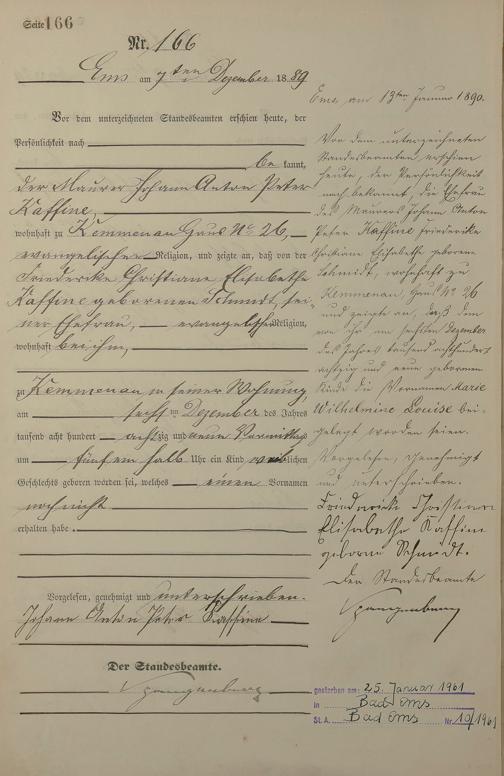 Seite 166
Nr. 166
Ems am 7ten Dezember 1889
Vor dem unterzeichneten Standesbeamten erschien heute, der
Persönlichkeit nach
be kannt,
der Maurer Johann Anton Peter
Kaffine,
wohnhaft zu Kemmenau Haus No 26,
evangelischer Religion, und zeigte an, daß von der
Friederike Christiane Elisabethe
Kaffine geborenen Schmidt, sei-
ner Ehefrau, evangelischer Religion,
wohnhaft bei ihm,
zu Kemmenau in seiner Wohnung
am sechsten Dezember des Jahres
tausend acht hundert achtzig und neun Vormittags
um fünf ein halb Uhr ein Kind weiblichen
Geschlechts geboren worden sei, welches einen Vornamen
noch nicht
erhalten habe.
Vorgelesen, genehmigt und unterschrieben.
Johann Anton Peter Kaffine
Der Standesbeamte.
Spangenberg
Ems am 13ten Januar 1890.
Vor dem unterzeichneten
Standesbeamten erschien
heute, der Persönlichkeit
nach bekannt, die Ehefrau
des Maurers Johann Anton
Peter Kaffine Friederike
Christiane Elisabethe geborene
Schmidt, wohnhaft zu
Kemmenau, Haus No 26
und zeigte an, daß dem
von ihr am sechsten Dezember
des Jahres tausend achthundert
achtzig und neun geborenen
Kinde die Vornamen Marie
Wilhelmine Louise bei-
gelegt worden seien.
Vorgelesen, genehmigt
und unterschrieben.
Elisabethe Kaffine
geborne Schmidt.
Der Standesbeamte
Spangenberg
gestorben am: 25. Januar 1961
in Bad Ems
St. A. Bad Ems Nr. 10/1961